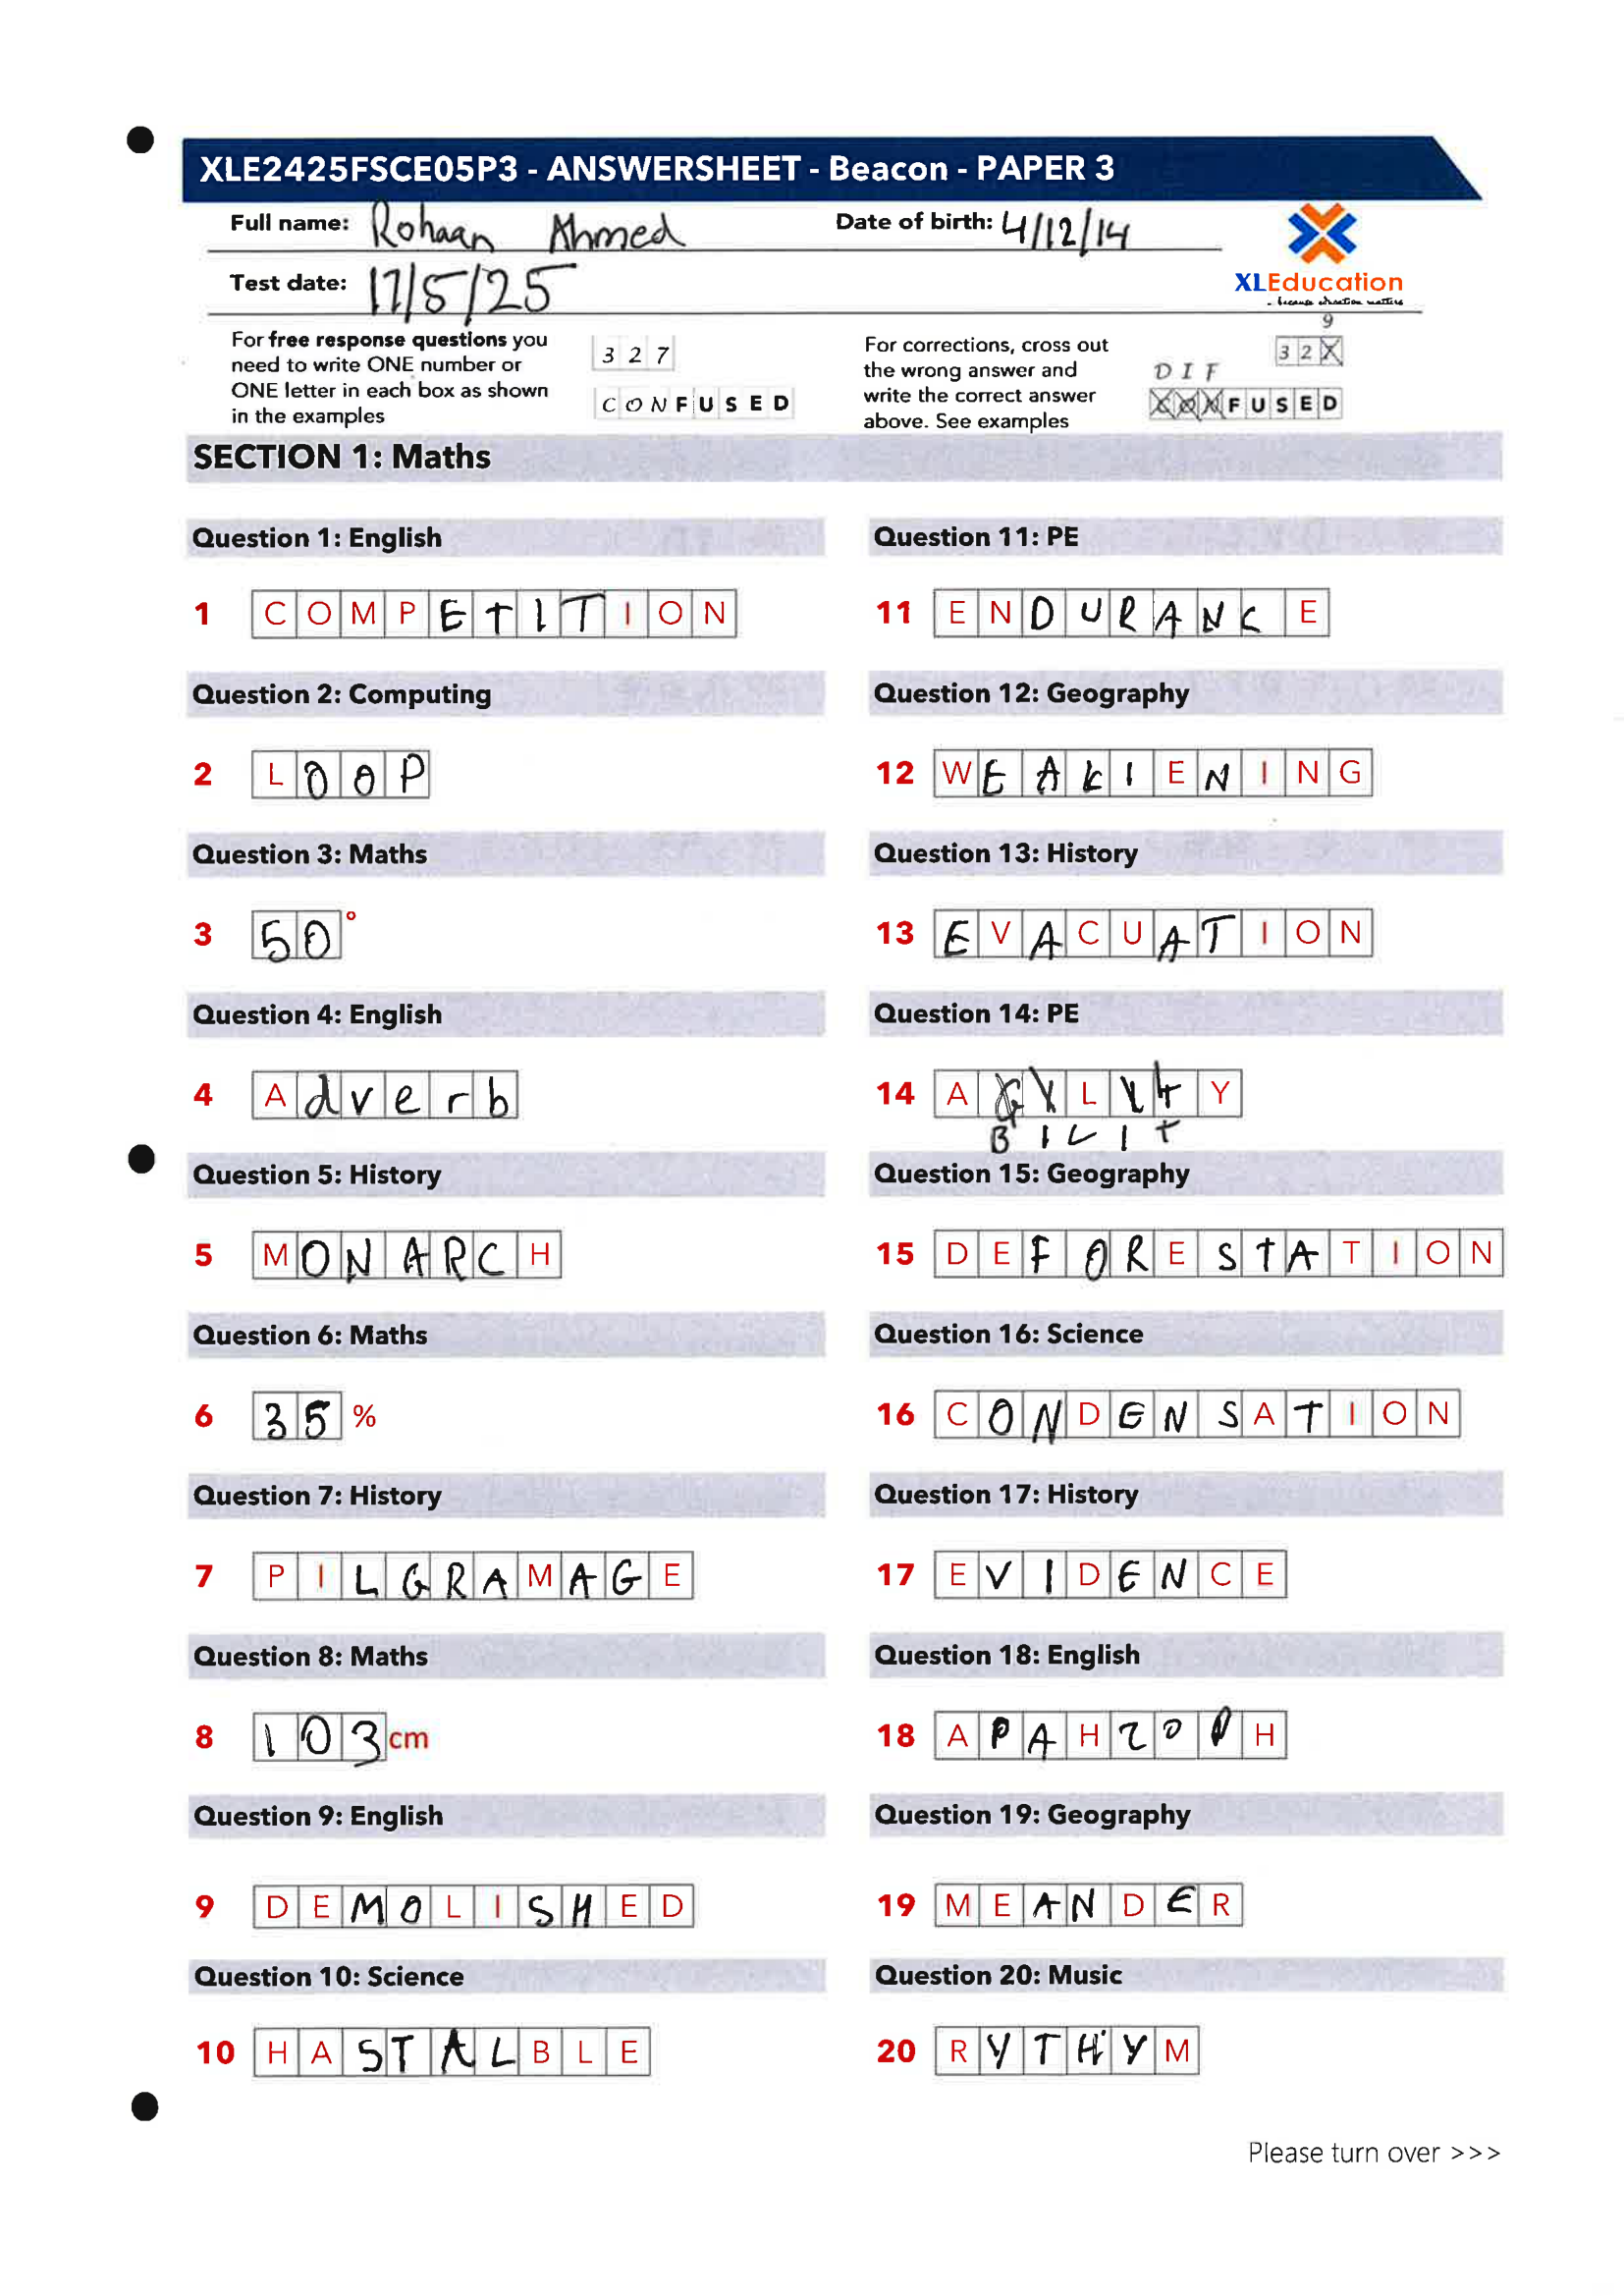 XLE2425FSCE05P3 - ANSWERSHEET - Beacon - PAPER 3
Full name: Rohaan Ahmed
Date of birth: 4/12/14
Test date: 17/5/25
XLEducation
- because education matters
For free response questions you
need to write ONE number or
ONE letter in each box as shown
in the examples
327
CONFUSED
For corrections, cross out
the wrong answer and
write the correct answer
above. See examples
9
32X
DIF
FUSED
SECTION 1: Maths
Question 1: English
1 COMPETITION
Question 2: Computing
2 LOOP
Question 3: Maths
3 50°
Question 4: English
4 Adverb
Question 5: History
5 MONARCH
Question 6: Maths
6 35 %
Question 7: History
7 PILGRAMAGE
Question 8: Maths
8 103 cm
Question 9: English
9 DEMOLISHED
Question 10: Science
10 HASTALBLE
Question 11: PE
11 ENDURANCE
Question 12: Geography
12 WEAKIENING
Question 13: History
13 EVACUATION
Question 14: PE
14 A L Y
BILIT
Question 15: Geography
15 DEFORESTATION
Question 16: Science
16 CONDENSATION
Question 17: History
17 EVIDENCE
Question 18: English
18 APAHZOPH
Question 19: Geography
19 MEANDER
Question 20: Music
20 RYTHYM
Please turn over >>>